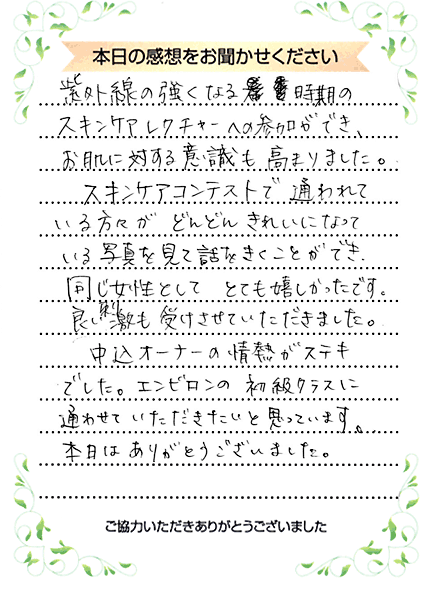 本日の感想をお聞かせください
紫外線の強くなる時期の
スキンケアレクチャーへの参加ができ、
お肌に対する意識も高まりました。
スキンケアコンテストで通われて
いる方々がどんどんきれいになって
いる写真を見て話をきくことができ、
同じ女性としてとても嬉しかったです。
良い刺激も受けさせていただきました。
中込オーナーの情熱がステキ
でした。エンビロンの初級クラスに
通わせていただきたいと思っています。
本日はありがとうございました。
ご協力いただきありがとうございました